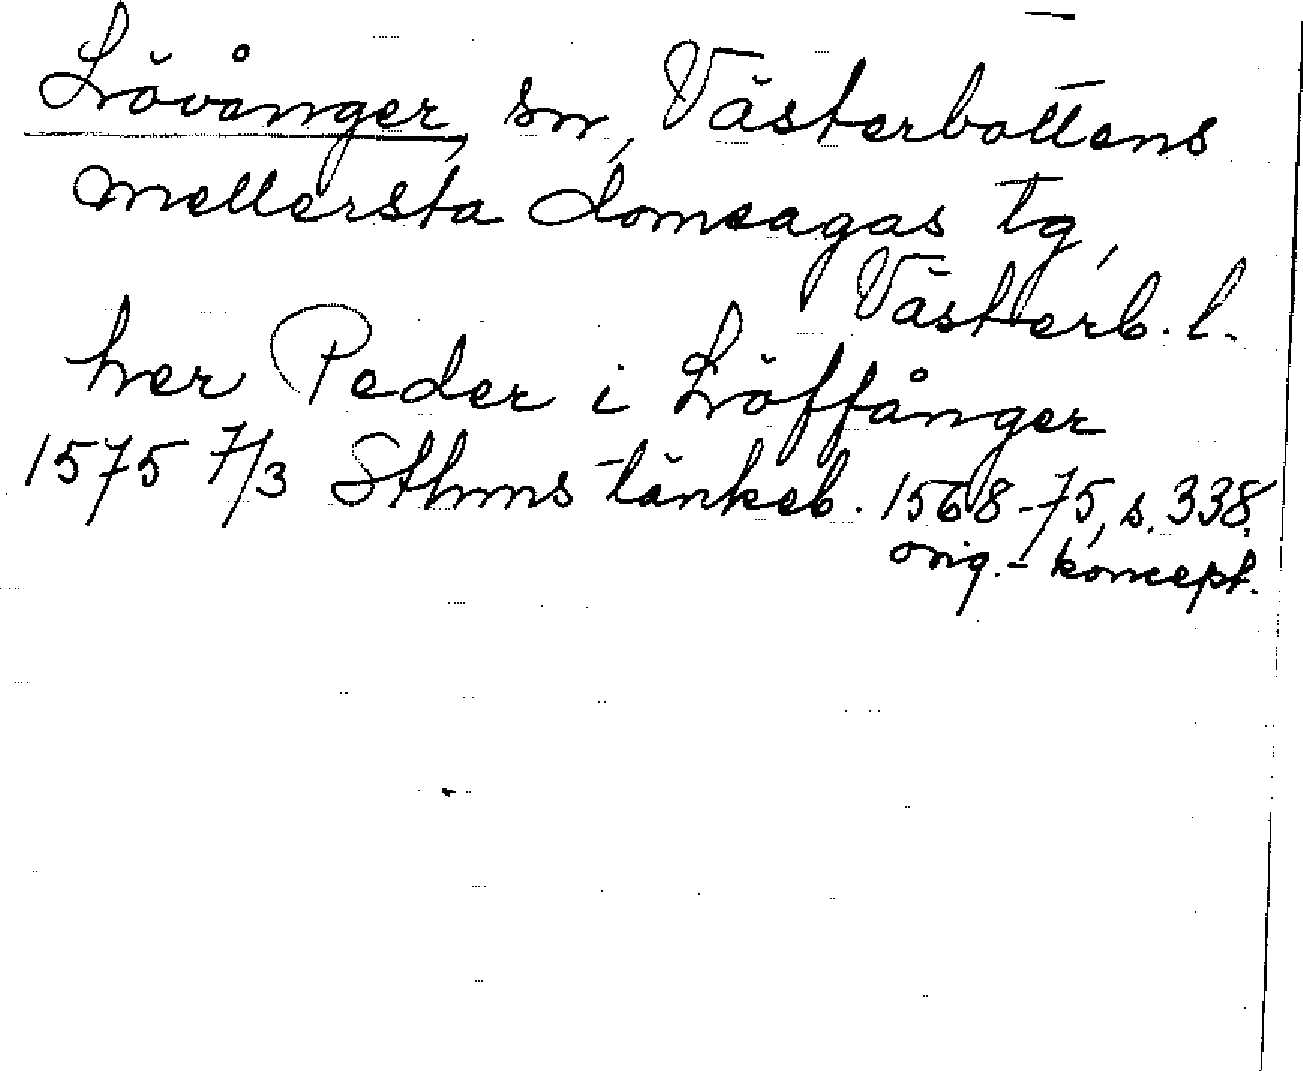 Lövånger, sn, Västerbottens
mellersta domsagas tg,
Västerb. l.
her Peder i Löffånger
1575 7/3 Sthms tänkeb. 1568-75, s. 338,
orig.-koncept.